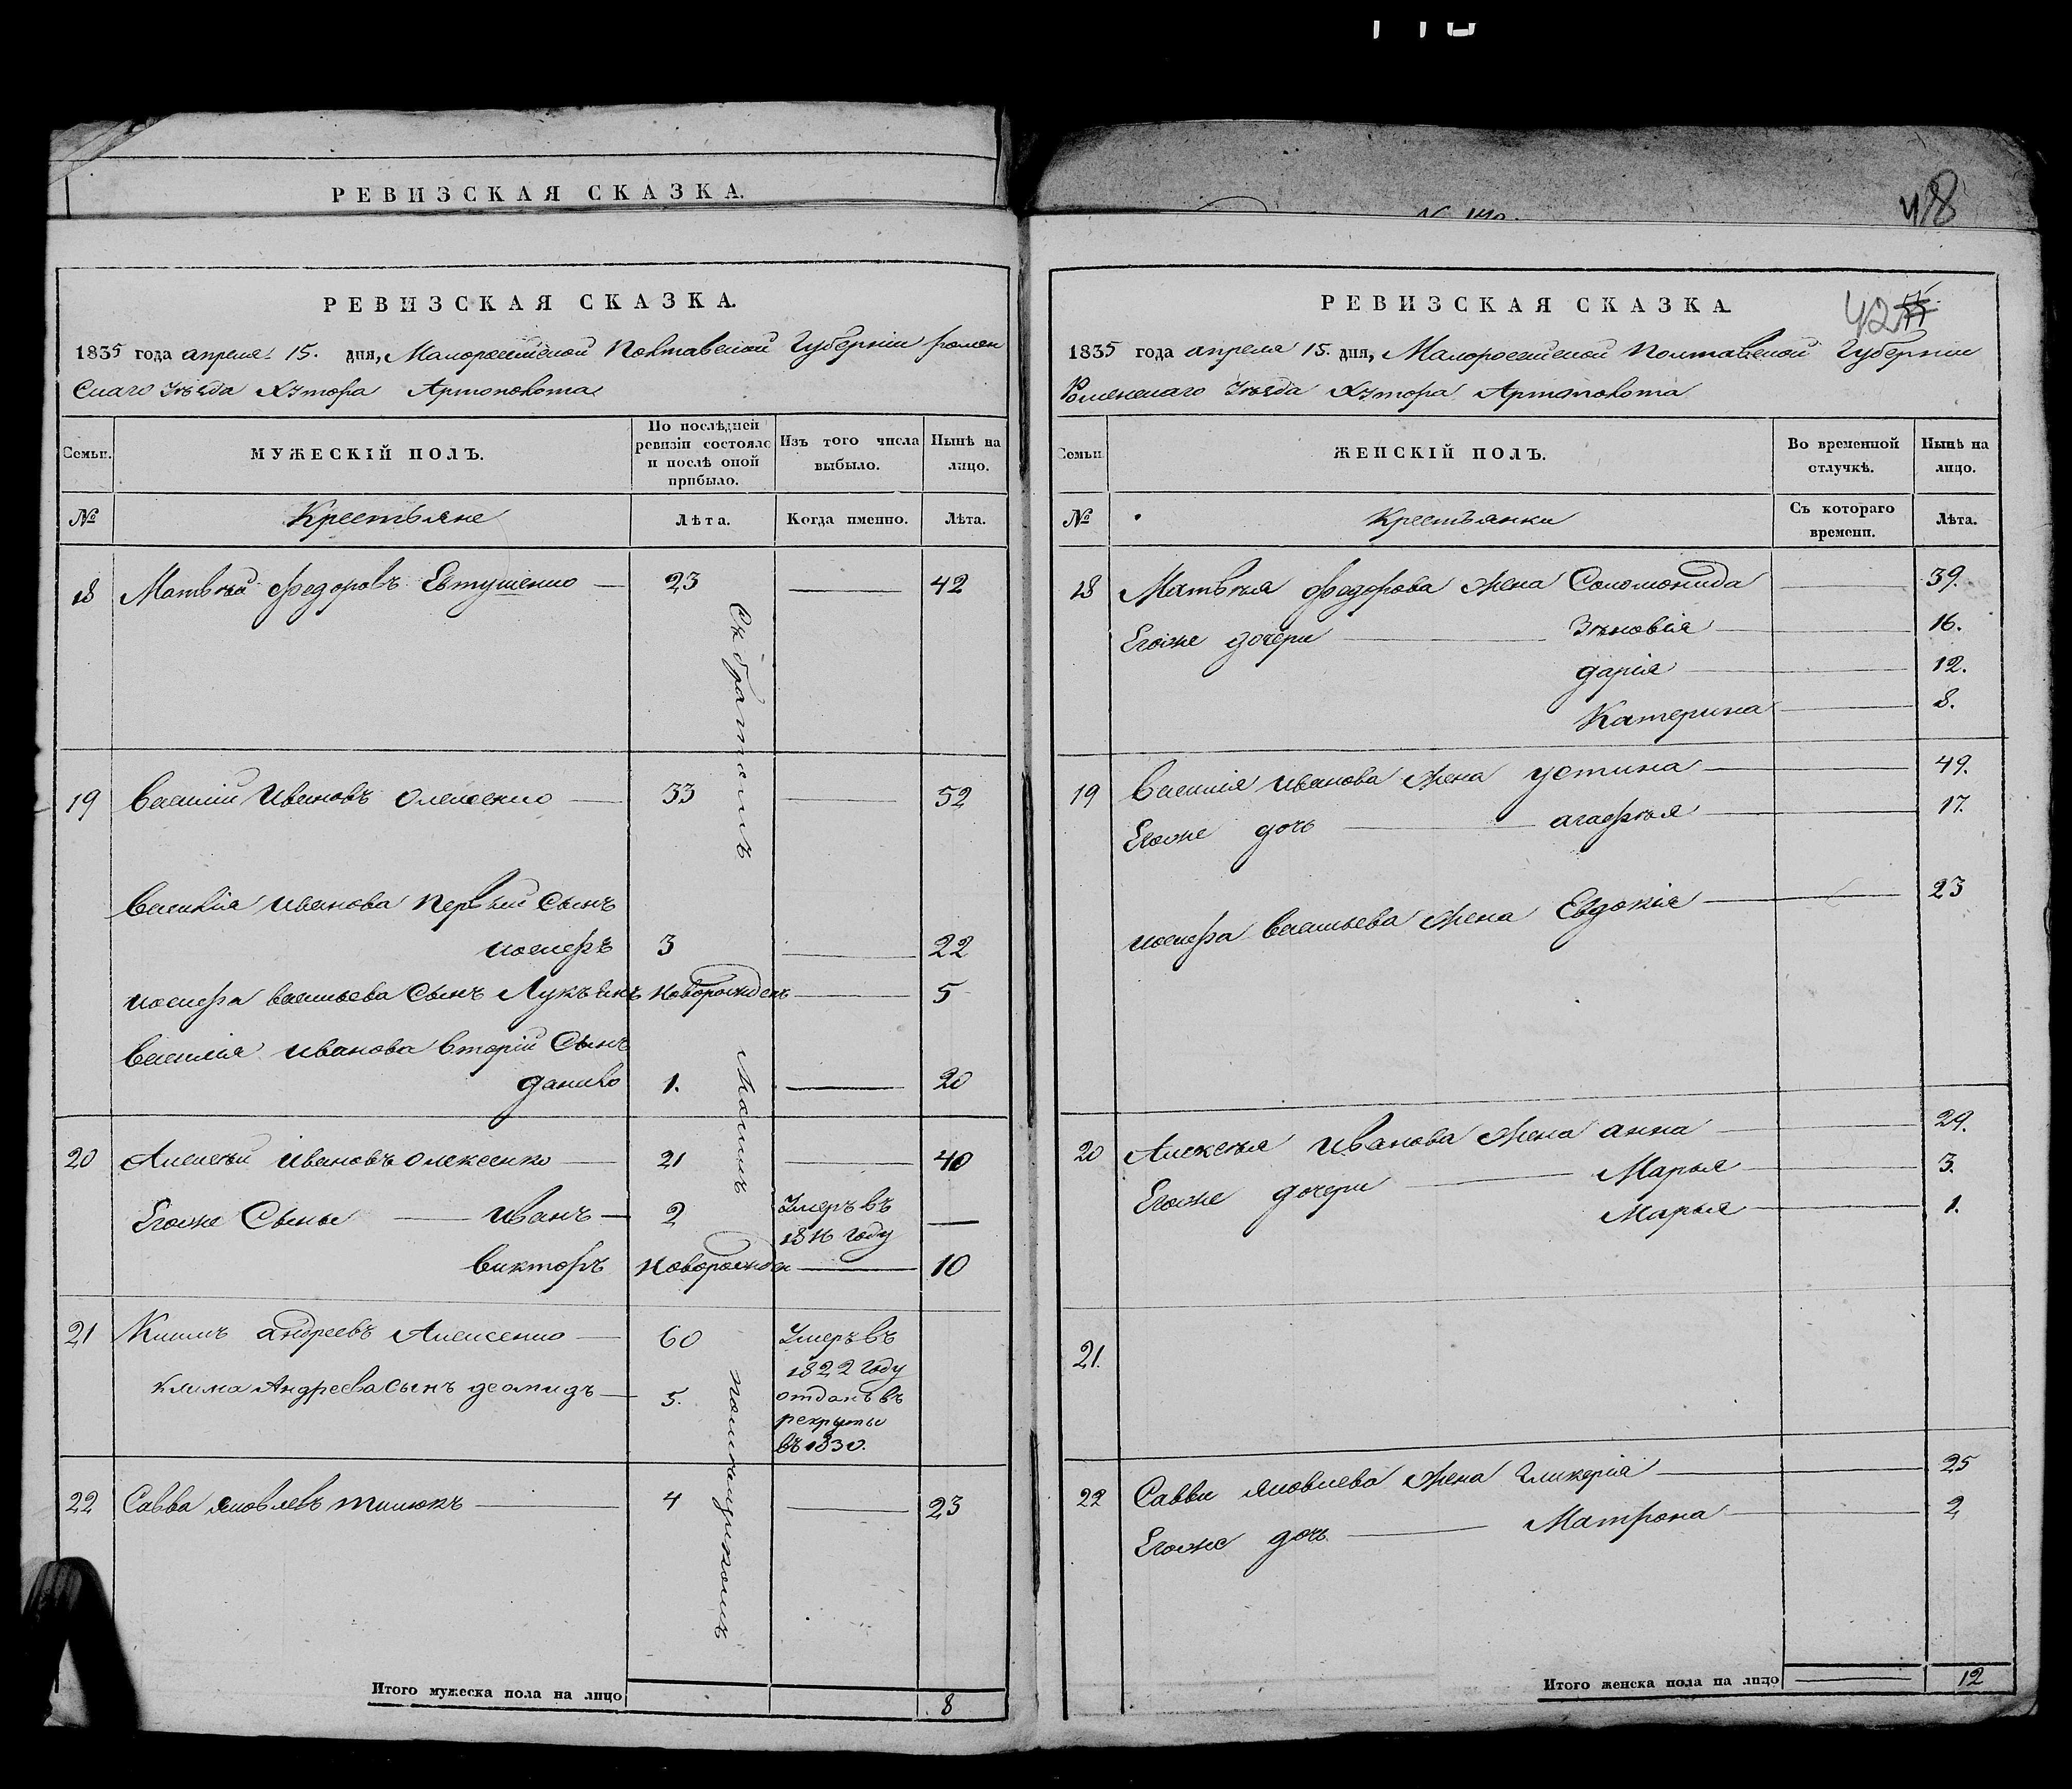 РЕВИЗСКАЯ СКАЗКА.
48
РЕВИЗСКАЯ СКАЗКА.
1835 года апреля 15. дня, Малоросейской Полтавской Губерніи ромен
скаго Уезда Хутора Артополота
Семьи.
МУЖЕСКІЙ ПОЛЪ.
По послѣдней ревизіи состояло и послѣ оной прибыло.
Изъ того числа выбыло.
Нынѣ на лицо.
№
Крестьяне
Лѣта.
Когда именно.
Лѣта.
18 Матвѣй Федоровъ Евтушенко — 23 — 42
19 Василій Ивановъ Олексенко — 33 — 52
Василія Иванова первый сынъ
иосифъ 3 — 22
иосифа васильева сынъ Лукъянъ новорожденъ — 5
Василія Иванова вторій сынъ
данило 1. — 20
20 Алексѣй Ивановъ олексенко — 21 — 40
Егоже Сыны — иванъ — 2 Умеръ въ —
1816 году
викторъ новорожден — 10
21 Климъ андреевъ Алексенко — 60 Умеръ въ
1822 году
клима Андреева сынъ деомидъ — 5. отданъ въ
рекруты
въ 1830.
22 Савва яковлевъ тилюкъ — 4 — 23
Съ братомъ
моимъ
Итого мужеска пола на лицо 8
РЕВИЗСКАЯ СКАЗКА
42
1835 года апреля 15. дня, Малоросейской Полтавской Губерніи
Роменскаго Уезда Хутора Артополота
Семьи.
ЖЕНСКІЙ ПОЛЪ.
Во временной отлучкѣ.
Нынѣ на лицо.
№
Крестьянки
Съ котораго времени.
Лѣта.
18 Матвѣя Федорова жена Соломонида — 39.
Егоже дочери — Зѣновія — 16.
дарія — 12.
Катерина — 8.
19 Василія иванова жена устина — 49.
Егоже дочь — агафѣя — 17.
иосифа васильева жена Евдокія — 23
20 Алексѣя Иванова жена анна — 29.
Егоже дочери — Марья — 3.
Марья — 1.
21.
22 Саввы яковлева жена Гликерія — 25
Егоже дочь — Матрона — 2
Итого женска пола на лицо — 12